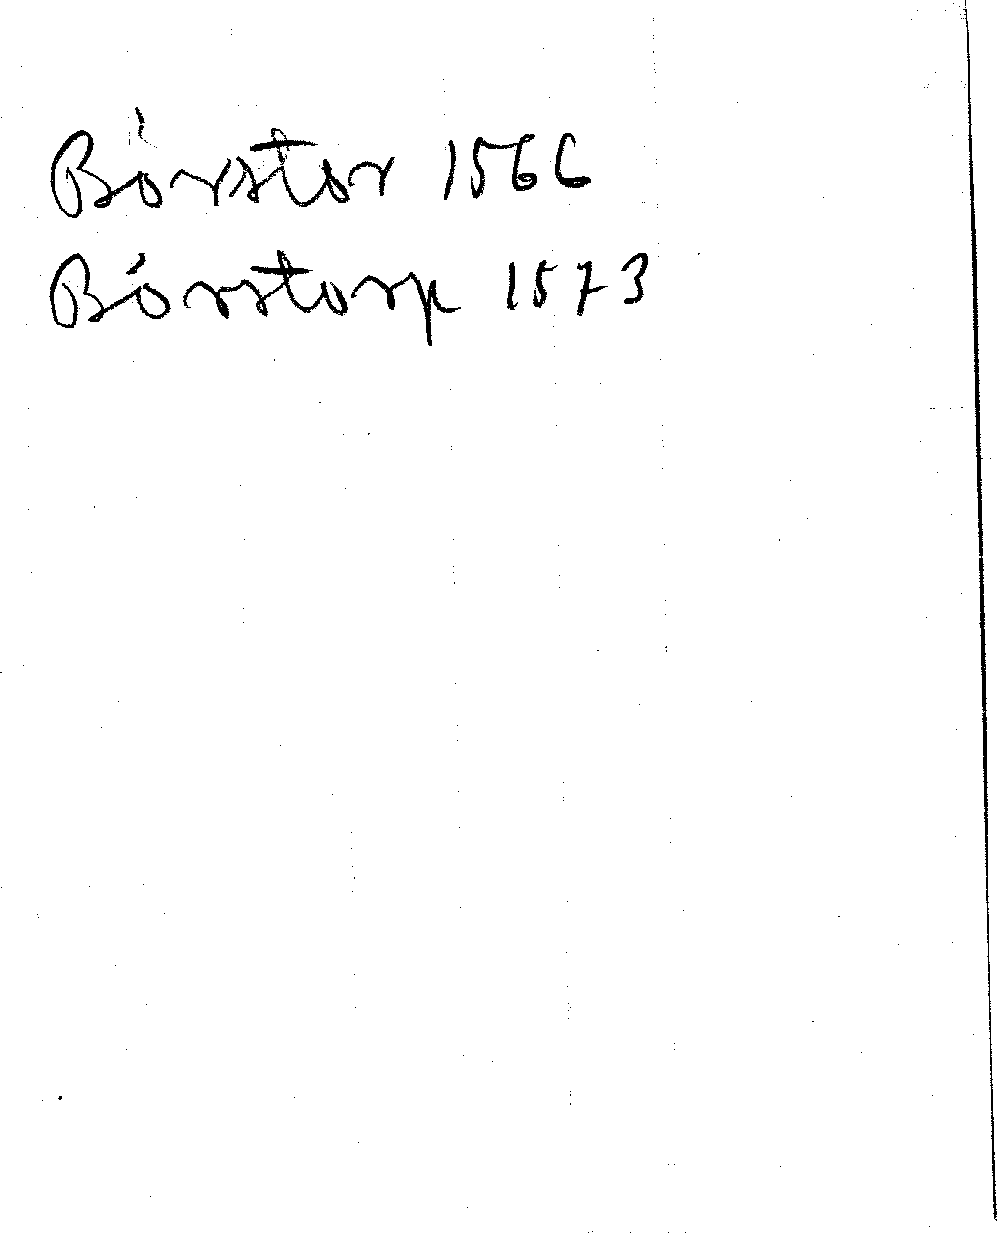 Bórstor 1566
Bórstorp 1573